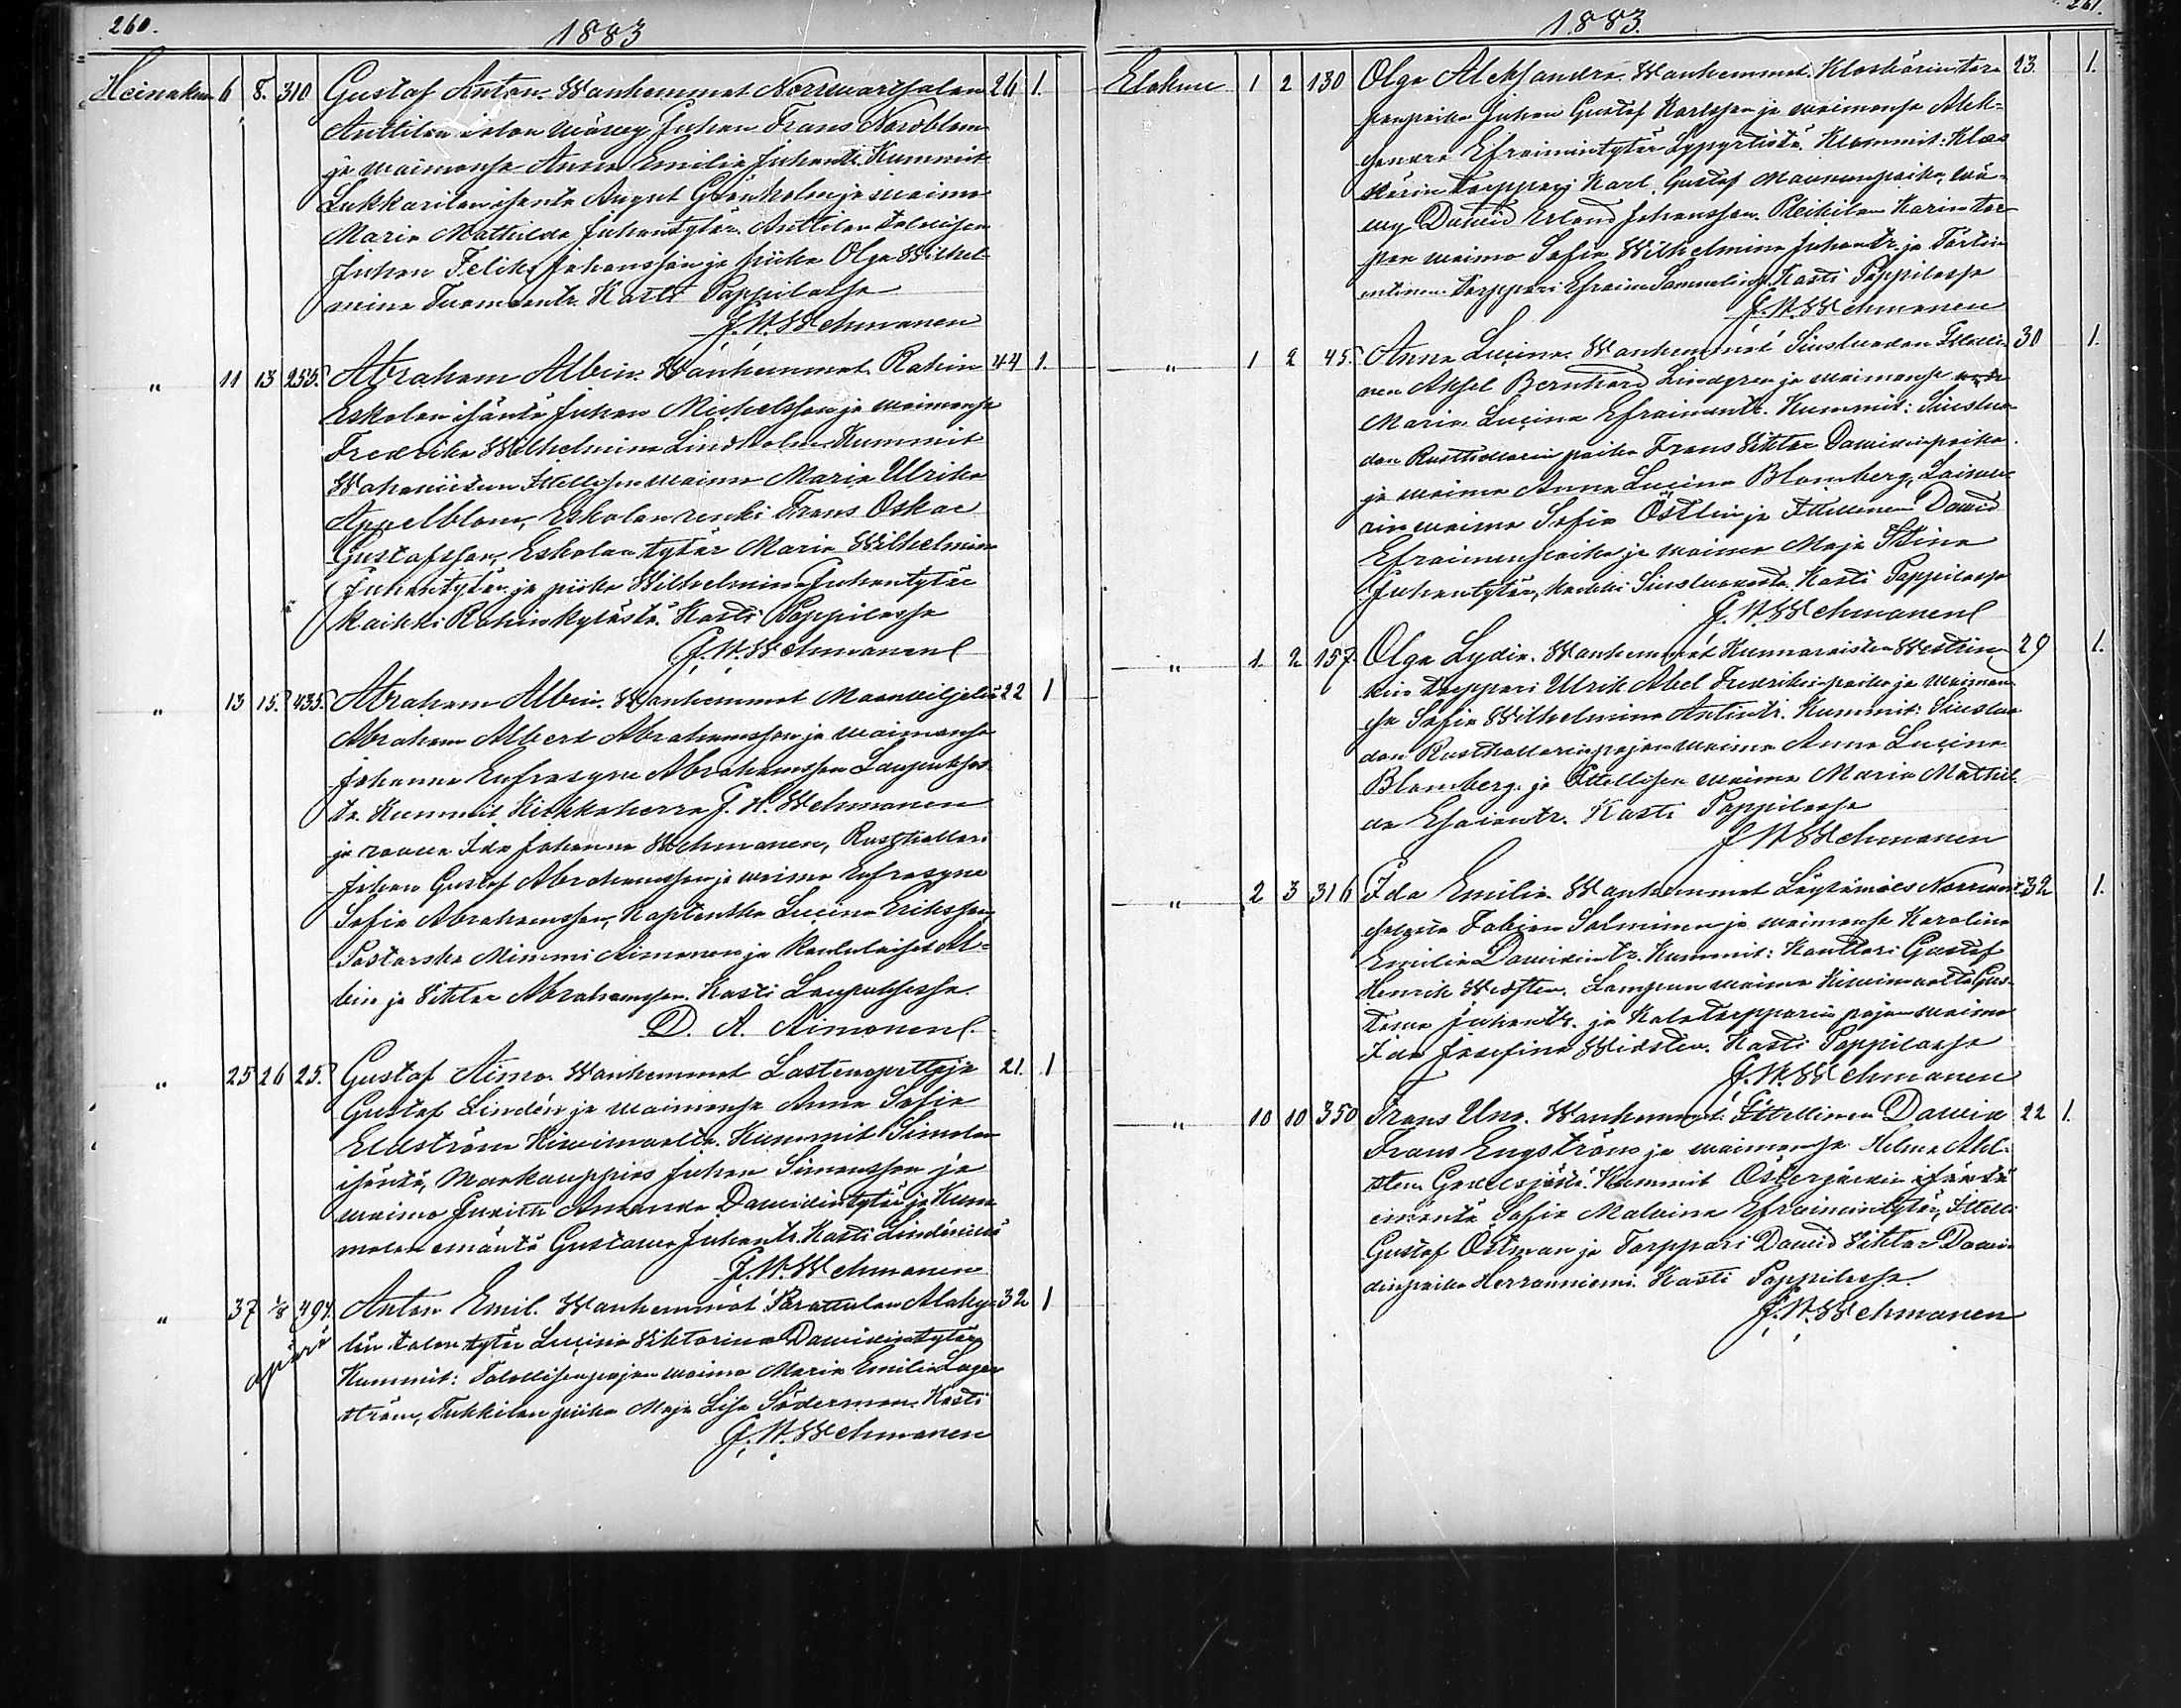 260.
1883
Heinakuu 6 8. 310 Gustaf Anton. Wanhemmat Norrwartsalan 26 1.
Anttilan talon wäwy Juhan Frans Nordblom
ja waimonsa Anna Emilia Juhantr. Kummit
Lukkarilan isäntä August Grönholm ja waimo
Maria Mathilda Juhantytär. Anttilan talollisen
Juhan Felik Johansson ja piika Olga Wilhel-
mina Tuomaantr. Kasti Pappilassa
J. W. Wehmanen
" 11 13 255. Abraham Albin. Wanhemmat Rahin 44 1.
Eskolan isäntä Juhan Michelsson ja waimonsa
Fredrika Wilhelmina Lindholm. Kummit
Itsellisen waimo Maria Ulrika
Appelblom, Eskolan renki Frans Oskar
Gustafsson, Eskolan tytär Maria Wilhelmina
Juhantytär ja piika Wilhelmina Juhantytär
kaikki Rahin kylästä. Kasti Pappilassa
J. W. Wehmanen
" 13 15. 435. Abraham Albin. Wanhemmat Maanwiljeliä 22 1
Abraham Albert Abrahamsson ja waimonsa
Johanna Eufrosyne Abrahamsson Laupuksos-
ta. Kummit Kirkkoherra J. W. Wehmanen
ja rouwa Ida Johanna Wehmanen, Rusthollari
Johan Gustaf Abrahamsson ja waimo Eufrosyne
Sofia Abrahamsson, Kaptenska Lucina Eriksson,
Pastorska Mimmi Aimonen ja koululaiset Al-
bin ja Viktor Abrahamsson. Kasti Laupuksessa.
D. A. Aimonen.
" 25 26 25. Gustaf Aimo. Wanhemmat Lastenopettaja 21. 1
Gustaf Lindén ja waimonsa Anna Sofia
Eldström Kiwimaalta. Kummit Simolan
isäntä, Maakauppias Juhan Simonsson ja
waimo Juditha Amanda Dawidintytär ja Kum-
molan emäntä Gustawa Juhantr. Kasti Lindénissä
J. W. Wehmanen
" 37 1/8 494. Anton Emil. Wanhemmat Parattulan Alaky- 32 1
äpärä län talon tytär Lucina Viktorina Dawidintytär
Kummit: Talollisen pojan waimo Maria Emilia Lager-
ström, Tukkilan piika Maja Lisa Söderman. Kasti
J. W. Wehmanen
261.
1883.
Elokuu 1 2 130 Olga Aleksandra. Wanhemmat Kloskärin tor- 23 1.
panpoika Juhan Gustaf Karlsson ja waimonsa Alek-
sandra Efraimintytär Lypyrtistä. Kummit: Klos-
kärin torppari Karl Gustaf Maununpoika, wä-
wy Dawid Erland Johansson. Pleikilan Karin tor-
pan waimo Sofia Wilhelmina Juhantr. ja
entinen torppari Efraim Samuelinp. Kasti Pappilassa
J. W. Wehmanen
" 1 2 45. Anna Lucina. Wanhemmat Siusluodon Itselli- 30 1.
nen Aksel Bernhard Lindgren ja waimonsa
Maria Lucina Efraimintr. Kummit: Siusluo-
don Rusthollarin poika Frans Viktor Dawidinpoika
ja waimo Anna Lucina Blomberg,
waimo Sofia Östlin ja Itsellinen Dawid
Efraiminpoika ja waimo Maja Stina
Juhantytär, kaikki Siusluodosta. Kasti Pappilassa
J. W. Wehmanen
" 1. 2 157. Olga Lydia. Wanhemmat Kunnaraisten Westrin- 29 1.
kin torppari Ulrik Abel Fredrikinpoika ja waimon-
sa Sofia Wilhelmina Antintr. Kummit: Siusluo-
don Rusthollarinpojan waimo Anna Lucina
Blomberg ja Itsellisen waimo Maria Mathil-
da Esaiantr. Kasti Pappilassa
J. W. Wehmanen
" 2 3 316 Ida Emilia. Wanhemmat Löytämies Norrwart- 32 1.
salosta Fabian Salminen ja waimonsa Karolina
Emilia Dawidintr. Kummit: Kanttori Gustaf
Henrik Widsten. Lampuan waimo Kiwimaalta Gus-
tawa Juhantr. ja Kalatorpparin pojan waimo
Ida Josefina Widsten. Kasti Pappilassa
J. W. Wehmanen
" 10 10 350 Frans Uno. Wanhemmat. Itsellinen Dawid 22 1.
Frans Engström ja waimonsa Helma Ahl-
sten. Kummit Östergårdin isäntä
emäntä Sofia Malwina Efraimintytär, Itselli-
Gustaf Östman ja Torppari Dawid Viktor Dawi-
dinpoika Herranniemi. Kasti Pappilassa.
J. W. Wehmanen